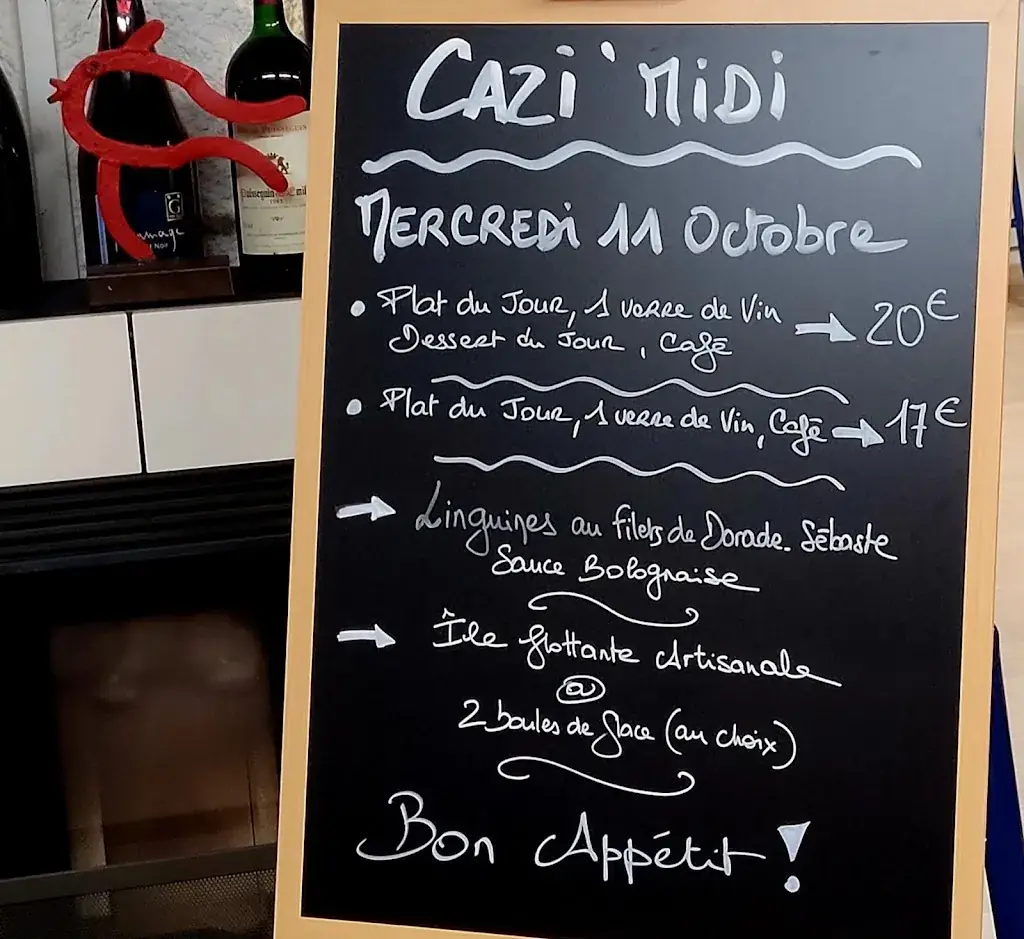 CAZI'MIDI
MERCREDI 11 Octobre
• Plat du Jour, 1 verre de Vin → 20€
Dessert du Jour, Café
• Plat du Jour, 1 verre de Vin, Café → 17€
→ Linguines au filets de Dorade. Sébaste
Sauce Bolognaise
→ Île flottante Artisanale
@
2 boules de glace (au choix)
Bon Appétit !
G
NOIR
1985